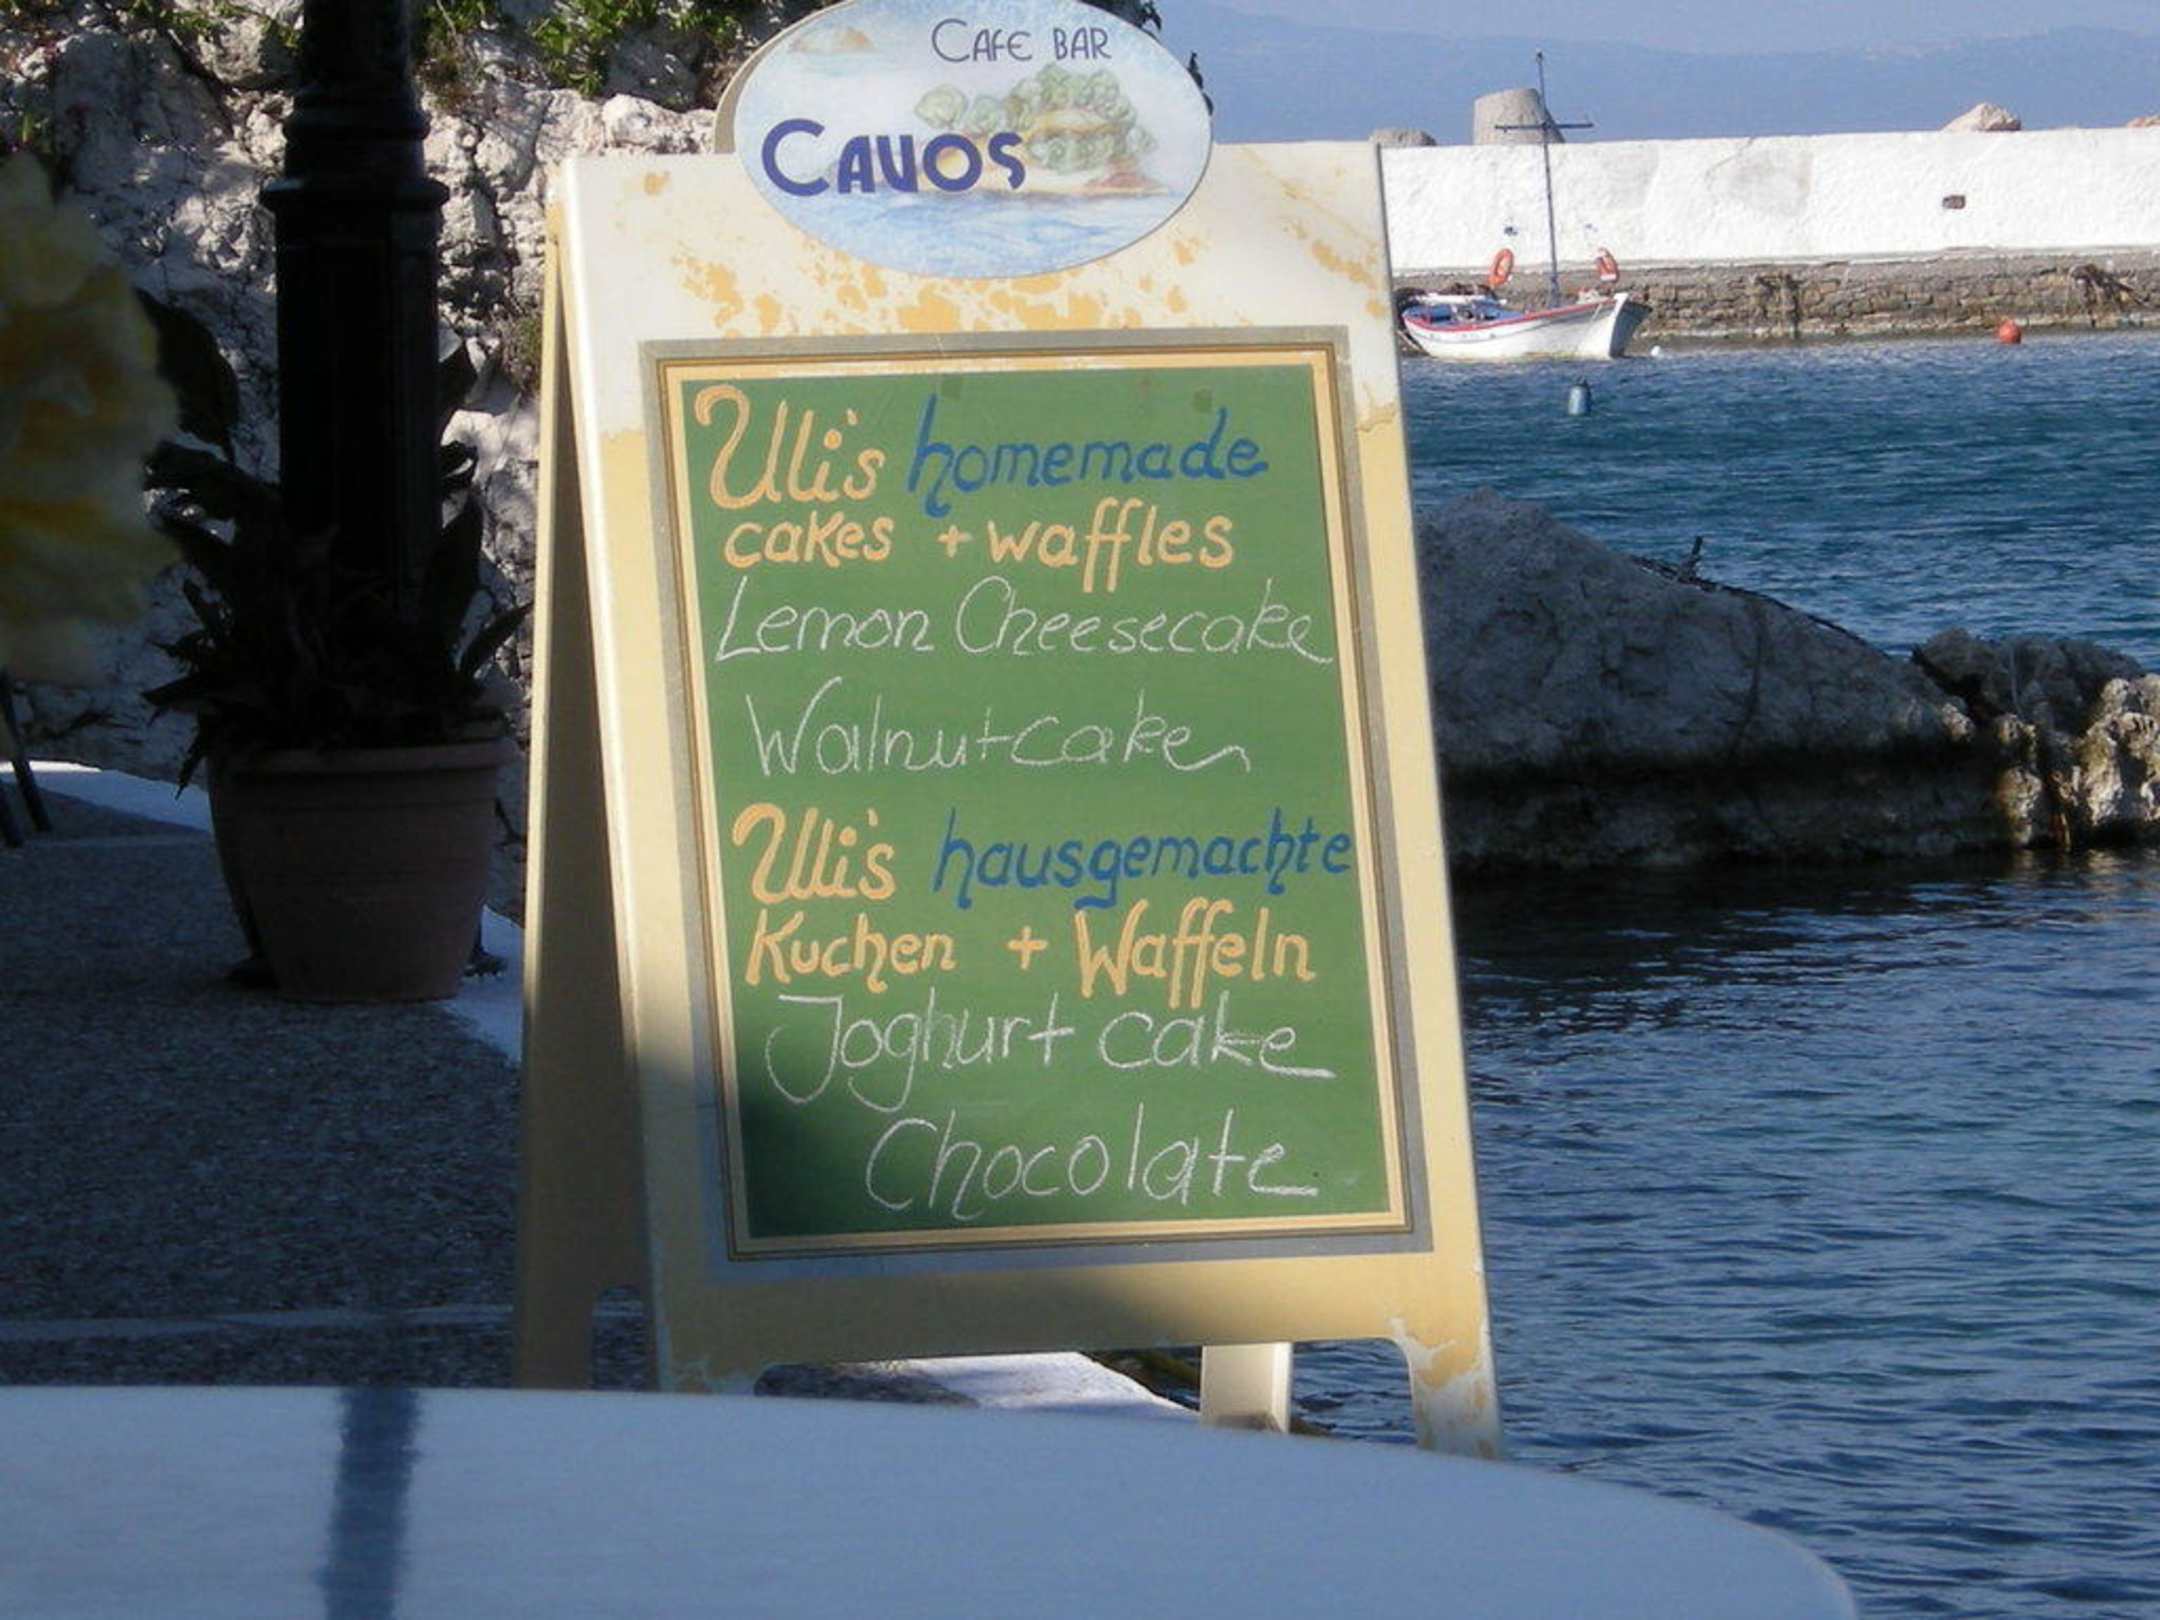 CAFE BAR
CAVOS
Uli's homemade
cakes + waffles
Lemon Cheesecake
Walnutcake
Uli's hausgemachte
Kuchen + Waffeln
Joghurt cake
Chocolate